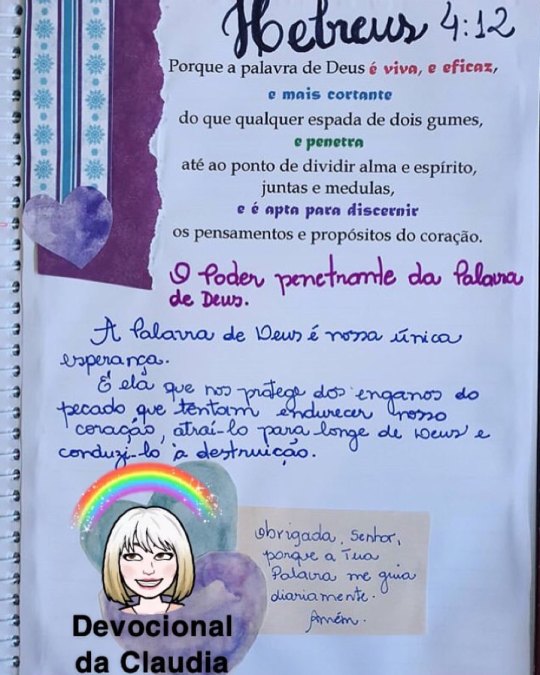 Hebreus 4:12
Porque a palavra de Deus é viva, e eficaz,
e mais cortante
do que qualquer espada de dois gumes,
e penetra
até ao ponto de dividir alma e espírito,
juntas e medulas,
e é apta para discernir
os pensamentos e propósitos do coração.
O Poder penetrante da Palavra
de Deus.
A Palavra de Deus é nossa única
esperança.
É ela que nos protege dos enganos do
pecado que tentam endurecer nosso
coração, atraí-lo para longe de Deus e
conduzi-lo à destruição.
Obrigada, Senhor,
porque a Tua
Palavra me guia
diariamente.
Amém.
Devocional
da Claudia